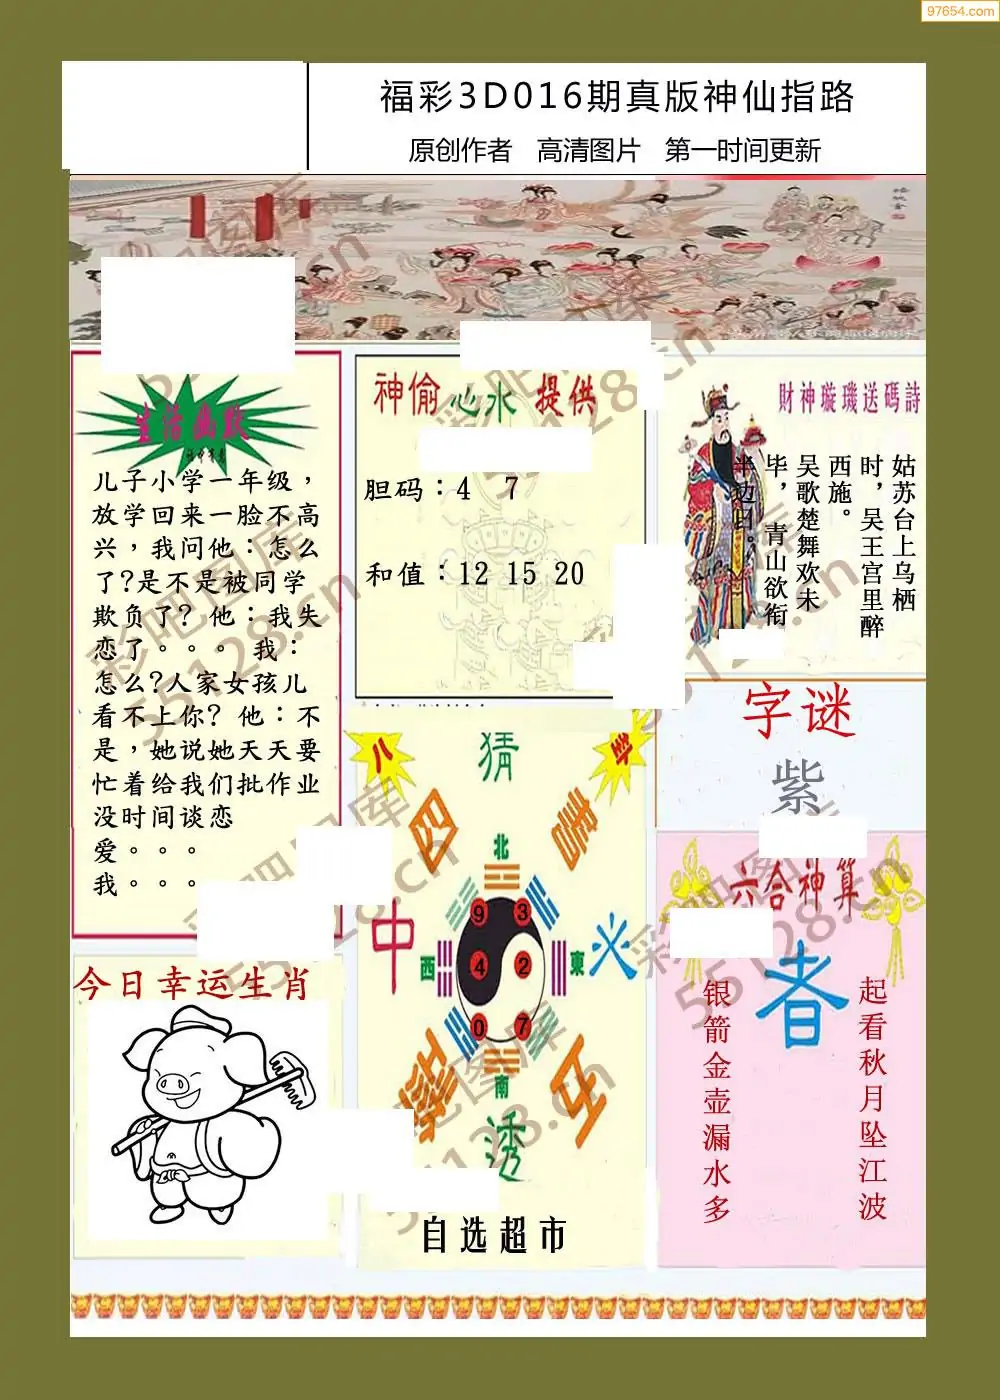 97654.com
福彩3D016期真版神仙指路
原创作者 高清图片 第一时间更新
生活幽默
儿子小学一年级，
放学回来一脸不高
兴，我问他：怎么
了?是不是被同学
欺负了? 他：我失
恋了。。。 我：
怎么?人家女孩儿
看不上你? 他：不
是，她说她天天要
忙着给我们批作业
没时间谈恋
爱。。。
我。。。
神偷心水提供
胆码：4 7
和值：12 15 20
財神璇璣送碼詩
姑苏台上乌栖
时，吴王宫里醉
西施。
吴歌楚舞欢未
毕，青山欲衔
半边日。
字谜
紫
八
猜
卦
四
書
北
9 3
中
西
4 2
東
火
0 7
南
五
透
自选超市
六合神算
者
银箭金壶漏水多
起看秋月坠江波
今日幸运生肖
彩吧图库
55128.cn